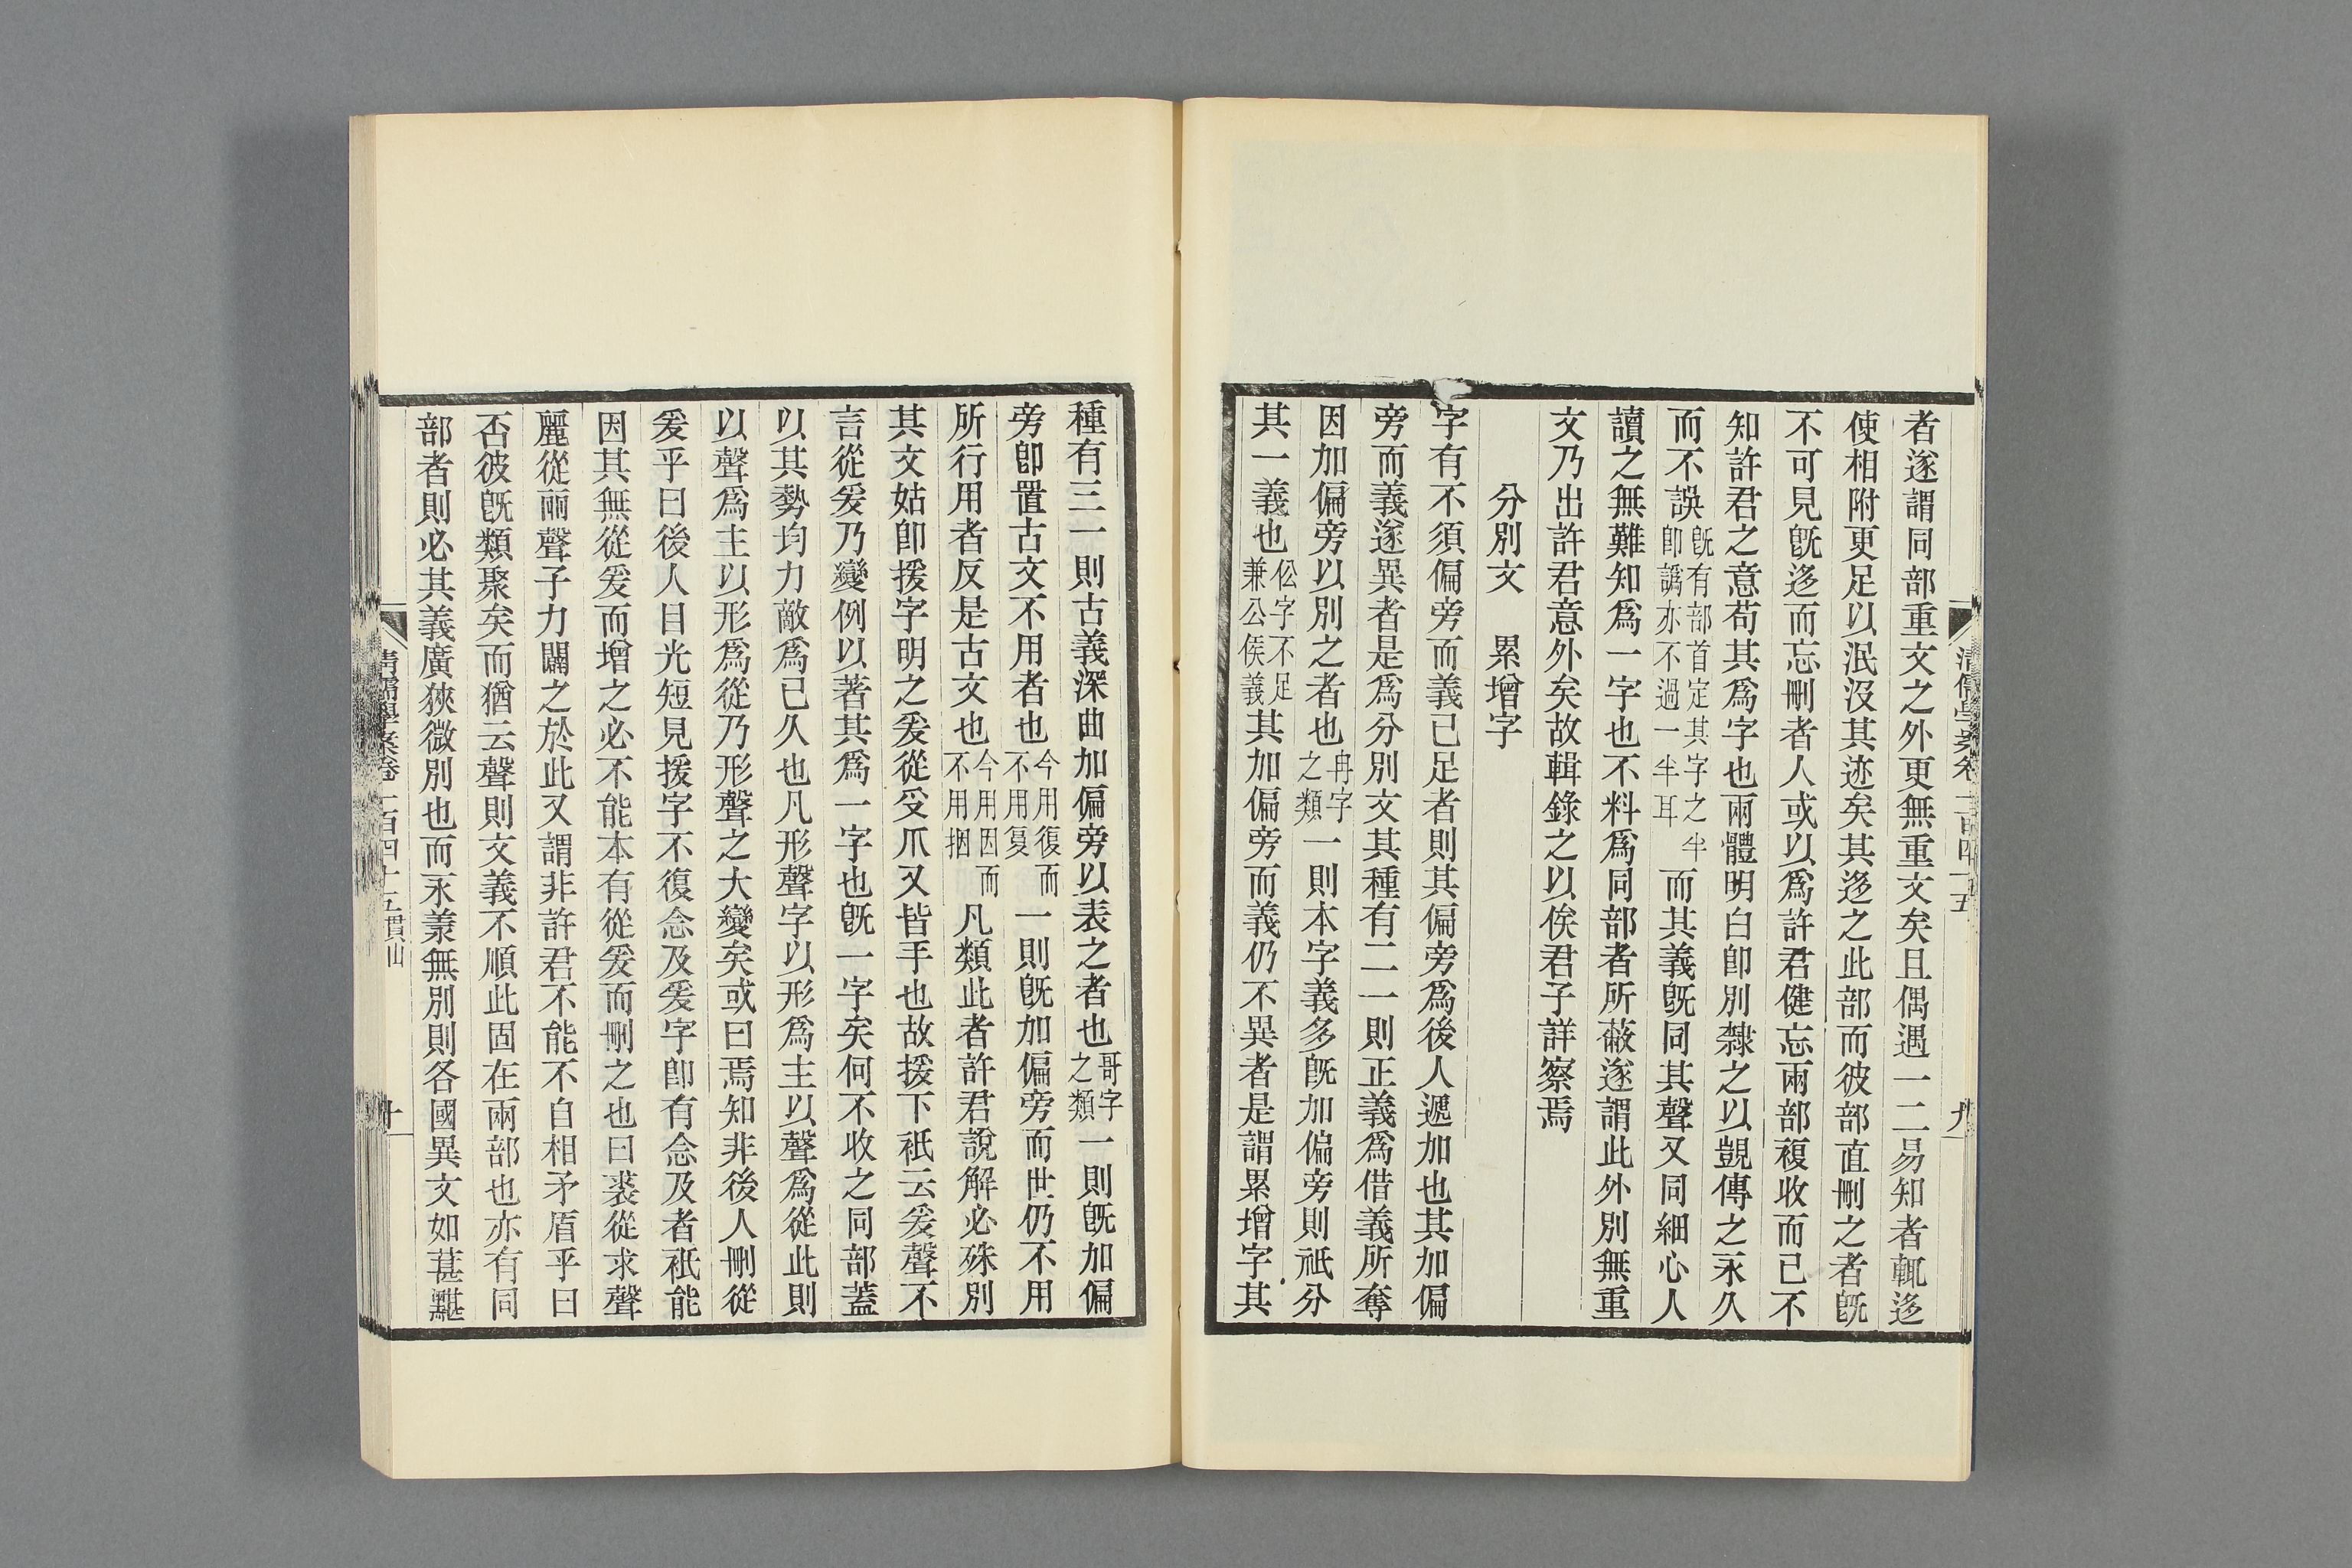 清儒學案卷二百四十五
九
者遂謂同部重文之外更無重文矣且偶遇一二易知者輒迻
使相附更足以泯沒其迹矣其迻之此部而彼部直刪之者旣
不可見旣迻而忘刪者人或以爲許君健忘兩部複收而已不
知許君之意苟其爲字也兩體明白卽別隸之以覬傳之永久
而不誤旣有部首定其字之半卽譌亦不過一半耳而其義旣同其聲又同細心人
讀之無難知爲一字也不料爲同部者所蔽遂謂此外別無重
文乃出許君意外矣故輯錄之以俟君子詳察焉
分別文　累增字
字有不須偏旁而義已足者則其偏旁爲後人遞加也其加偏
旁而義遂異者是爲分別文其種有二一則正義爲借義所奪
因加偏旁以別之者也冉字之類一則本字義多旣加偏旁則祇分
其一義也伀字不足兼公侯義其加偏旁而義仍不異者是謂累增字其
種有三一則古義深曲加偏旁以表之者也哥字之類一則旣加偏
旁卽置古文不用者也今用復而不用复一則旣加偏旁而世仍不用
所行用者反是古文也今用因而不用捆凡類此者許君說解必殊別
其文姑卽援字明之爰從受爪又皆手也故援下祇云爰聲不
言從爰乃變例以著其爲一字也旣一字矣何不收之同部蓋
以其勢均力敵爲已久也凡形聲字以形爲主以聲爲從此則
以聲爲主以形爲從乃形聲之大變矣或曰焉知非後人刪從
爰乎曰後人目光短見援字不復念及爰字卽有念及者祇能
因其無從爰而增之必不能本有從爰而刪之也曰裘從求聲
麗從丽聲子力闢之於此又謂非許君不能不自相矛盾乎曰
否彼旣類聚矣而猶云聲則文義不順此固在兩部也亦有同
部者則必其義廣狹微別也而永羕無別則各國異文如葚黮
清儒學案卷二百四十五貫山
十